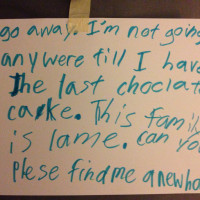 go away. I'm not going
anywere till I have
The last choclat
carke. This famil
is lame. can yo
Plese find me a newho